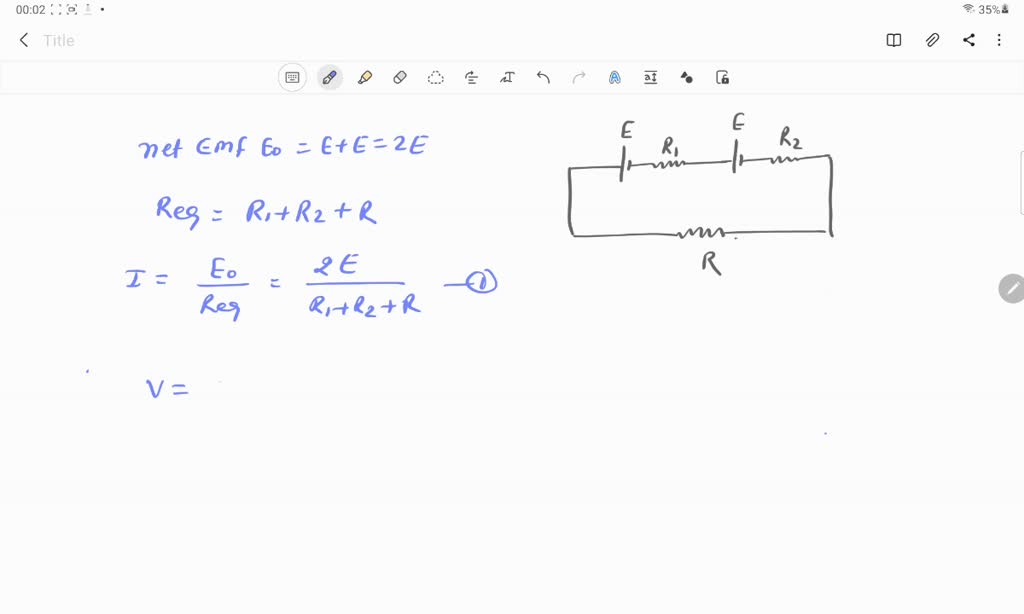 00:02
35%
Title
net Emf E₀ = E+E = 2E
Req = R₁+R₂+R
I = E₀/Req = 2E/(R₁+R₂+R) —①
V =
E
R₁
E
R₂
R